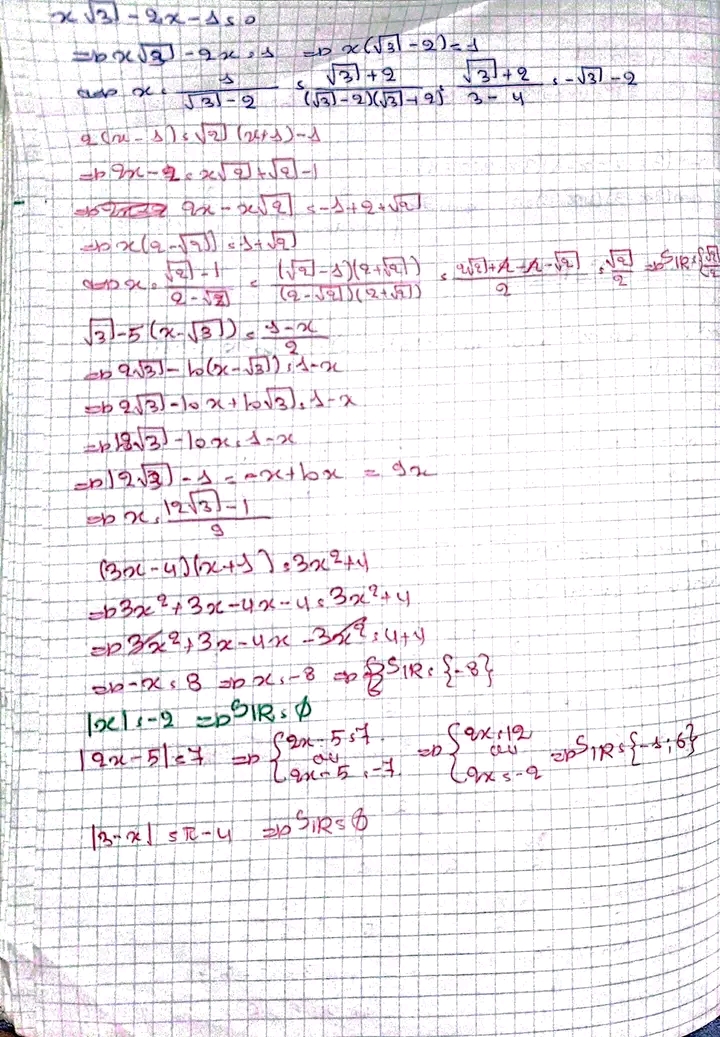 x√3 - 2x - 1 = 0
⇒ x√3 - 2x = 1 ⇒ x(√3 - 2) = 1
⇔ x = 1/(√3 - 2) = (√3 + 2)/((√3 - 2)(√3 + 2)) = (√3 + 2)/(3 - 4) = -√3 - 2
2(x - 1) = √2(x + 1) - 1
⇒ 2x - 2 = x√2 + √2 - 1
⇒ 2x - x√2 = -1 + 2 + √2
⇒ x(2 - √2) = 1 + √2
⇔ x = (√2 - 1)/(2 - √2) = ((√2 - 1)(2 + √2))/((2 - √2)(2 + √2)) = (2√2 + 2 - 2 - √2)/2 = √2/2 ⇒ S_IR = {√2/2
√3 - 5(x - √3) = (1 - x)/2
⇒ 2√3 - 10(x - √3) = 1 - x
⇒ 2√3 - 10x + 10√3 = 1 - x
⇒ 12√3 - 10x = 1 - x
⇒ 12√3 - 1 = -x + 10x = 9x
⇒ x = (12√3 - 1)/9
(3x - 4)(x + 1) = 3x² + 4
⇒ 3x² + 3x - 4x - 4 = 3x² + 4
⇒ 3x² + 3x - 4x - 3x² = 4 + 4
⇒ -x = 8 ⇒ x = -8 ⇒ S_IR = {-8}
|x| = -2 ⇒ S_IR = ∅
|2x - 5| = 7 ⇒ {2x - 5 = 7 ou 2x - 5 = -7 ⇒ {2x = 12 ou 2x = -2 ⇒ S_IR = {-1; 6}
|3 - x| = π - 4 ⇒ S_IR = ∅